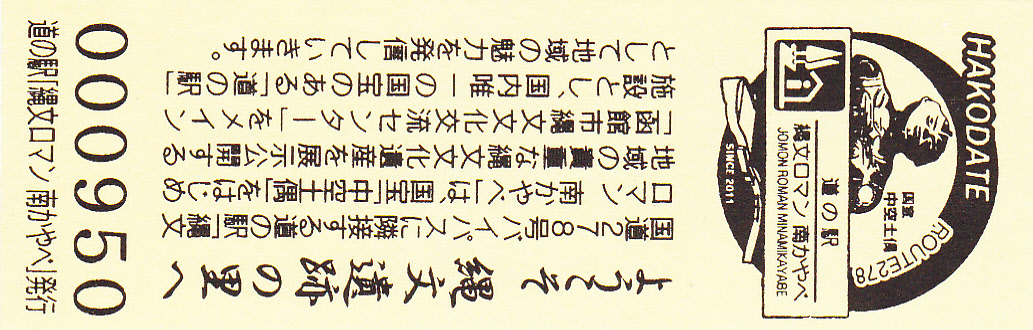 HAKODATE
道の駅
縄文ロマン 南かやべ
JOMON ROMAN MINAMIKAYABE
国宝
中空土偶
ROUTE278
SINCE 2011
ようこそ 縄文遺跡の里へ
国道278号バイパスに隣接する道の駅「縄文
ロマン 南かやべ」は、国宝「中空土偶」をはじめ
地域の貴重な縄文文化遺産を展示公開する
「函館市縄文文化交流センター」をメイン
施設とし、国内唯一の国宝のある「道の駅」
として地域の魅力を発信していきます。
000950
道の駅「縄文ロマン 南かやべ」発行